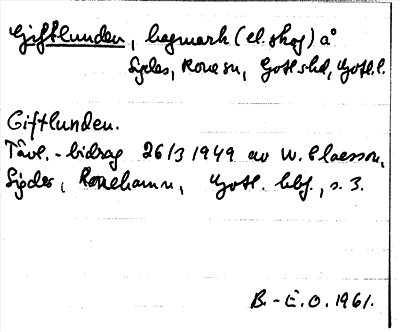 Giftlunden, hagmark (el. skog) å
Sigdes, Rone sn, Gotl. s hd, Gotl. l.
Giftlunden.
Tävl.-bidrag 26/3 1949 av W. Claesson,
Sigdes, Ronehamn, Gotl. bbl., s. 3.
B.-E.O. 1961.